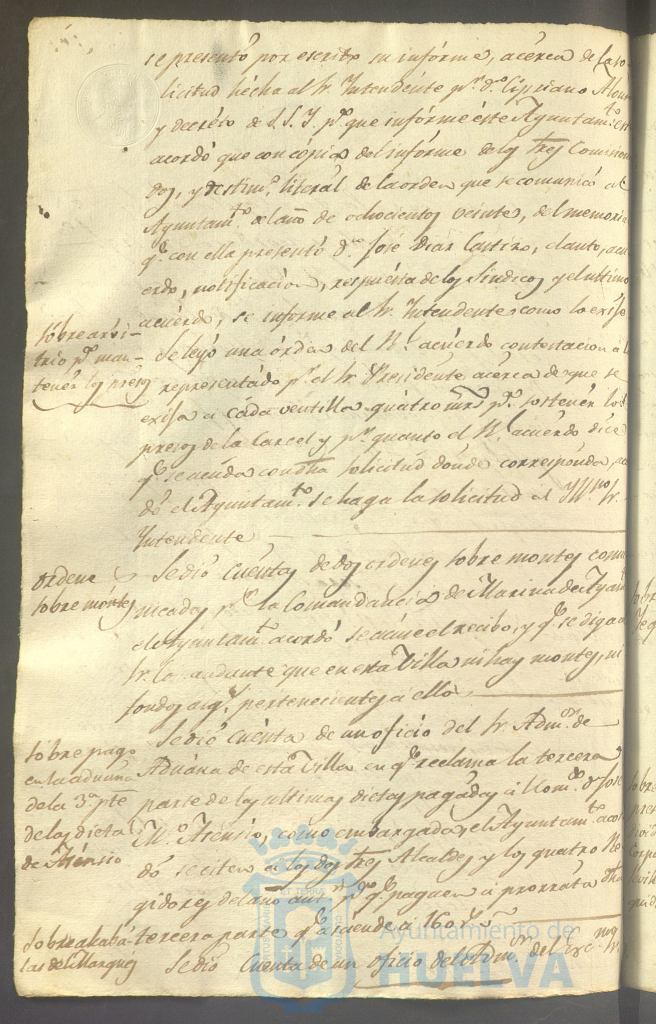 se presentó por escrito su informe, acérca de la so
licitud hécha al Sr. Intendénte pr. dn. Cipriano
y decréto de S.S.Y. pa. que infórme éste Ayuntamto. este
acordó que con cópia del infórme de los tres Comision
dos, y testimo. literál de la orden que se comunicó al
Ayuntamto. el año de ochocientos veinte, del memoria
qe. con ella presentó dn. José Diaz Castizo, de auto, acu
erdo, notificacion, respuésta de los Síndicos y el ultimo
acuérdo, se informe al Sr. Intendente como lo exíje
Sobre arvi-
trio pa. man-
tenér los presos
Se leyó una órden del Rl. acuérdo contestacion á lo
representádo pr. el Sr. Presidénte acérca de que se
exija a cáda ventilla quátro mrs. pa. sostenér los
presos de la Carcel y pr. quanto el Rl. acuérdo dice
qe. se acúda con dha solicitud donde corresponda, acor
dó el Ayuntamto. se haga la solicitud al Yllmo. Sr.
Yntendente
ordene
sobre móntes
Se dió cuénta de dos ordenes sobre montes comu
nicadas pr. la Comandancia de Marina de Ayamte.
el Ayuntamto. acordó se acúse el recibo, y qe. se diga a
Sr. Comandante que en esta Villa ni hay montes, ni
fondos algs. pertenecientes a ellos
Sobre pago
en la aduana
de la 3a. pte
de las dietas
de Asensio
Se dió cuénta de un oficio del Sr. Admor. de
Aduána de esta Villa en qe. reclama la tercera
parte de las ultimas dietas pagadas á dn. José
Ma. Asensio, como embargada, el Ayuntamto. acor
dó se citen a los dos Sres Alcaldes y los quatro Re
gidores del año antr. pa. qe. paguen á prorráta dha
tercera parte qe. asciende á 160 rs. vn.
Sobre alcabá
las del Marques
Se dió cuenta de un oficio del Admor. del Exmo. Sr.
Ayuntamiento de
HUELVA